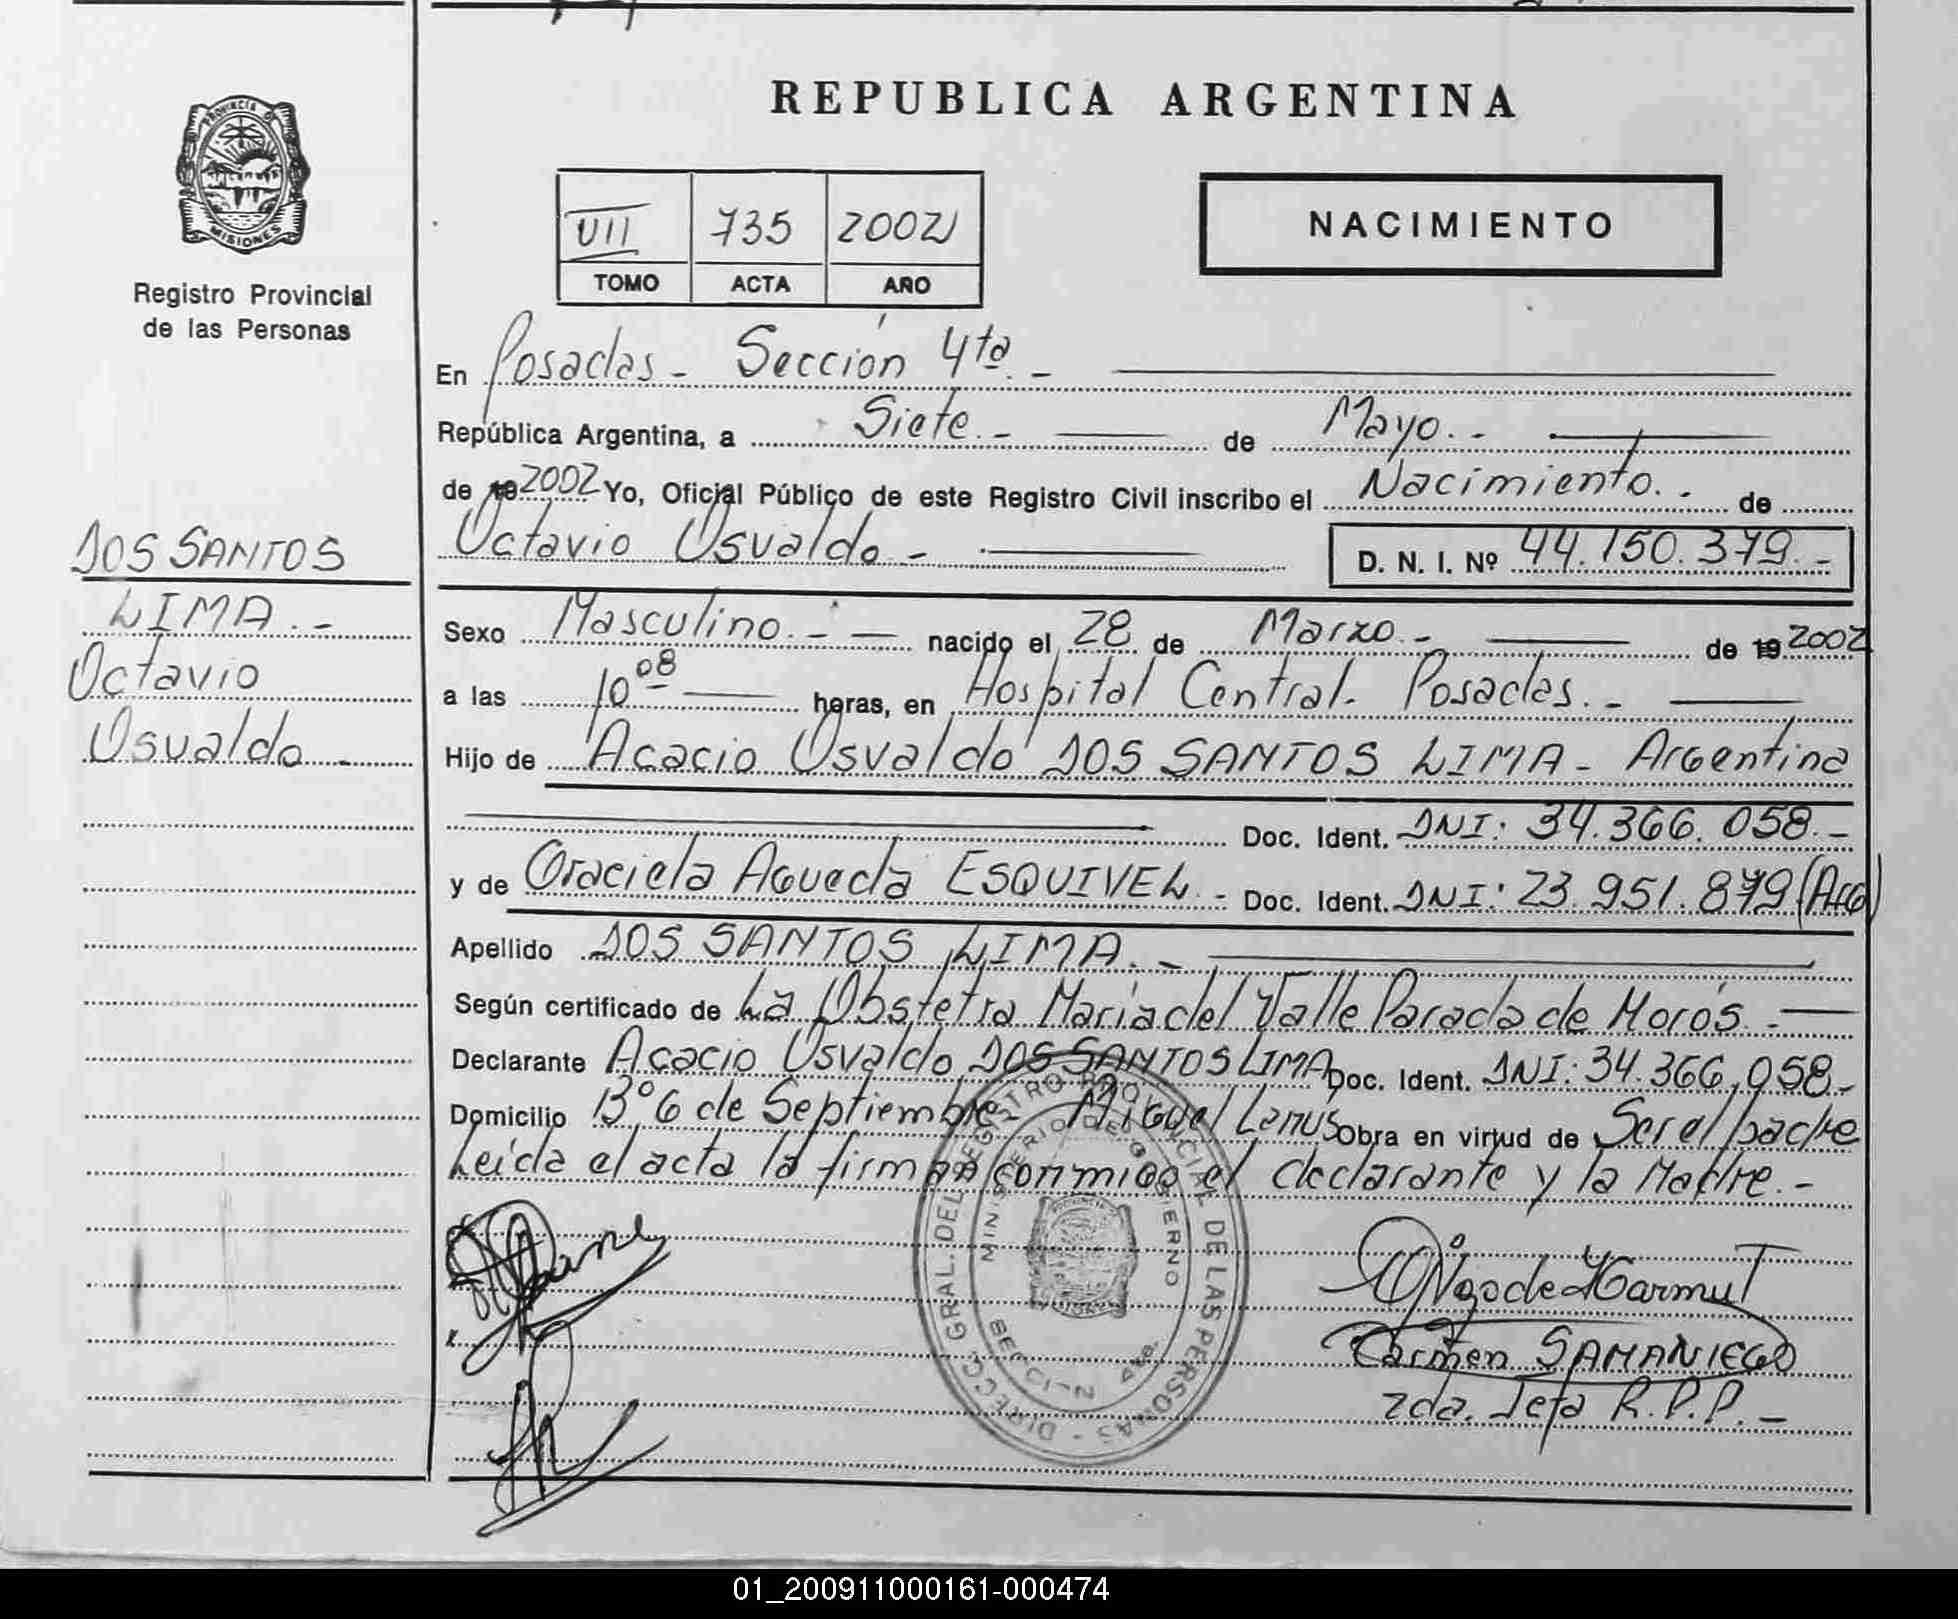 REPUBLICA ARGENTINA
PROVINCIA DE
MISIONES
Registro Provincial
de las Personas
VII 735 2002
TOMO ACTA AÑO
NACIMIENTO
En Posadas - Sección 4ta. -
República Argentina, a Siete. - de Mayo. -
de 19 2002 Yo, Oficial Público de este Registro Civil inscribo el Nacimiento. . de
Octavio Osvaldo - D. N. I. Nº 44.150.379. -
DOS SANTOS
LIMA. -
Octavio
Osvaldo -
Sexo Masculino. - nacido el 28 de Marzo. - de 19 2002
a las 10 08 horas, en Hospital Central - Posadas. -
Hijo de Acacio Osvaldo DOS SANTOS LIMA - Argentina
Doc. Ident. DNI: 34.366.058. -
y de Graciela Agueda ESQUIVEL. - Doc. Ident. DNI: 23.951.879 (Arg)
Apellido DOS SANTOS LIMA. -
Según certificado de La Obstetra Maria del Valle Parada de Morós. -
Declarante Acacio Osvaldo DOS SANTOS LIMA Doc. Ident. DNI: 34.366.058. -
Domicilio Bº 6 de Septiembre - Miguel Lanus Obra en virtud de Ser el padre
Leída el acta la firman conmigo el declarante y la Madre. -
DIRECC. GRAL. DEL REGISTRO PROVINCIAL DE LAS PERSONAS -
MINISTERIO DE GOBIERNO
SECCION 4ta.
Carmen SAMANIEGO
2da. Jefa R.P.P. -
01_200911000161-000474